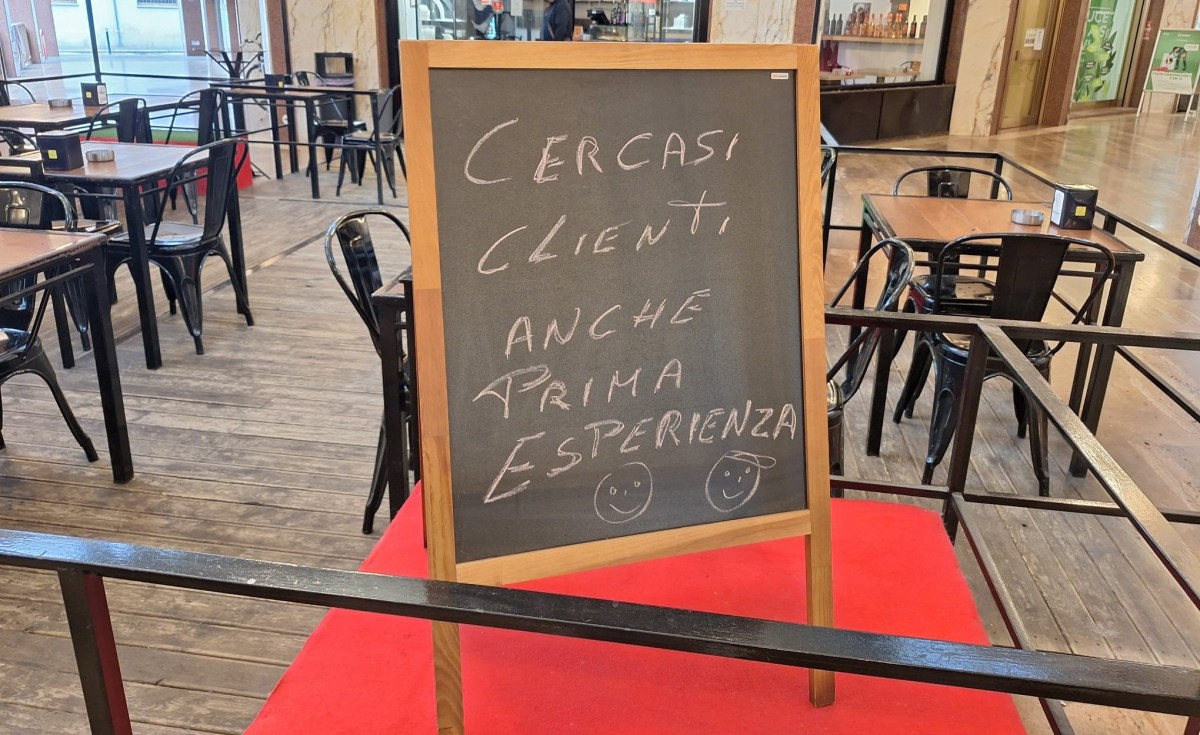 CERCASI
CLIENTI
ANCHE
PRIMA
ESPERIENZA